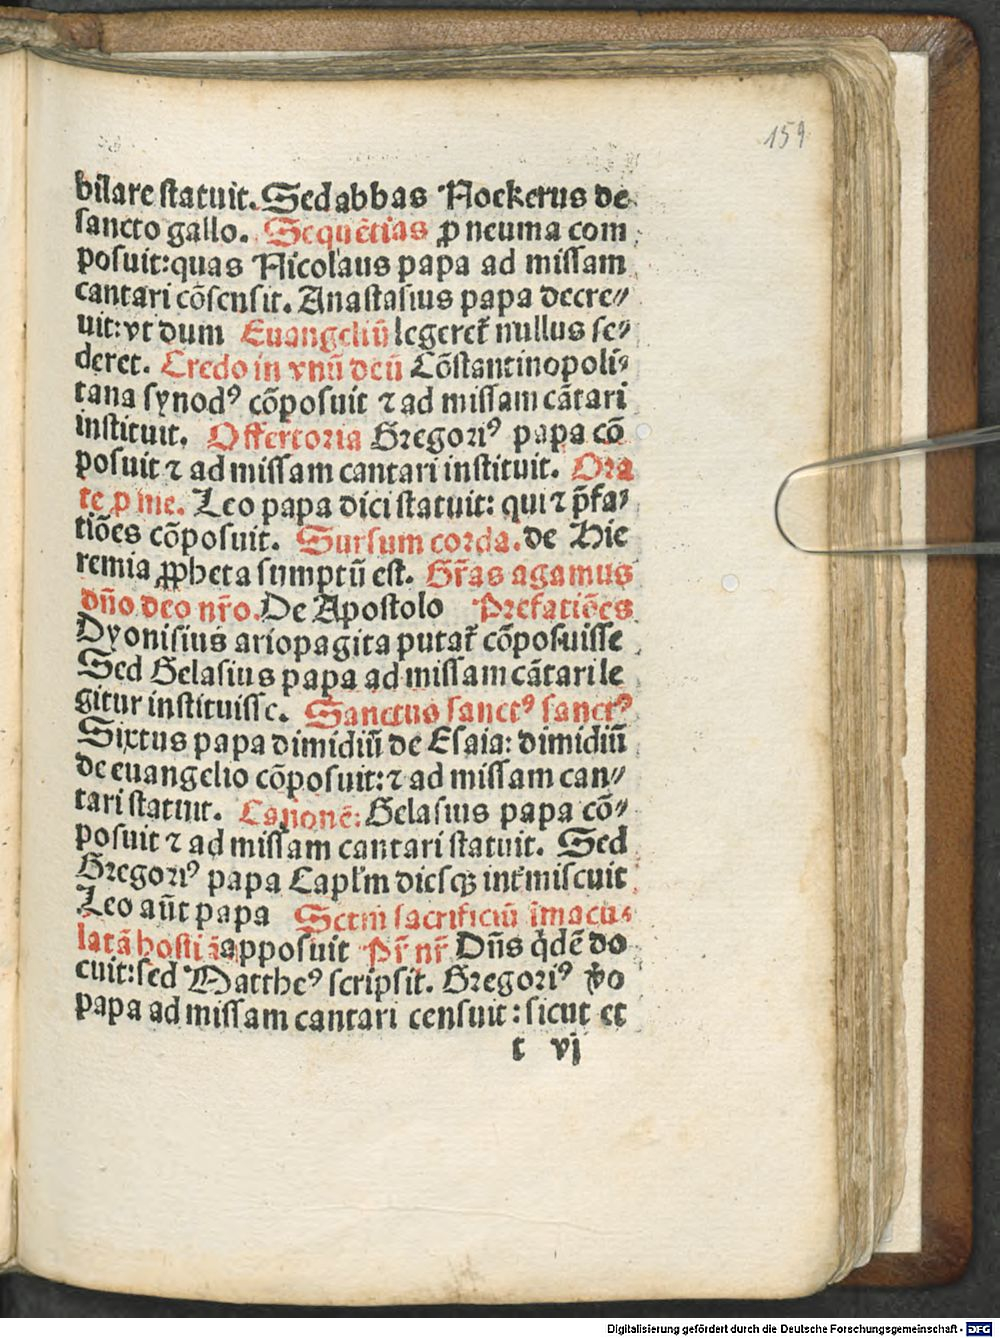 159
bilare statuit. Sed abbas Nockerus de
sancto gallo. Sequētias ꝓ neuma com
posuit: quas Nicolaus papa ad missam
cantari cōsensit. Anastasius papa decre⸗
uit: vt dum Euangeliū legeret᷑ nullus se⸗
deret. Credo in vnū deū Cōstantinopoli⸗
tana synodꝰ cōposuit ⁊ ad missam cātari
instituit. Offertoria Gregoriꝰ papa cō
posuit ⁊ ad missam cantari instituit. Ora
te ꝓ me. Leo papa dici statuit: qui ⁊ p̄fa⸗
tiōes cōposuit. Sursum corda. de Hie
remia ꝓpheta sumptū est. Gr̄as agamus
dn̄o deo nr̄o. De Apostolo Prefatiōes
Dyonisius ariopagita putat᷑ cōposuisse
Sed Gelasius papa ad missam cātari le
gitur instituisse. Sanctus sanctꝰ sanctꝰ
Sixtus papa dimidiū de Esaia: dimidiū
de euangelio cōposuit: ⁊ ad missam can⸗
tari statuit. Canonē: Gelasius papa cō⸗
posuit ⁊ ad missam cantari statuit. Sed
Gregoriꝰ papa Capl̄m diesqꝫ int̄miscuit
Leo aūt papa Sctm̄ sacrificiū īmacu⸗
latā hostiā apposuit Pr̄ nr̄ Dn̄s q̇dē do
cuit: sed Mattheꝰ scripsit. Gregoriꝰ v̄o
papa ad missam cantari censuit: sicut et
t vj
Digitalisierung gefördert durch die Deutsche Forschungsgemeinschaft - DFG